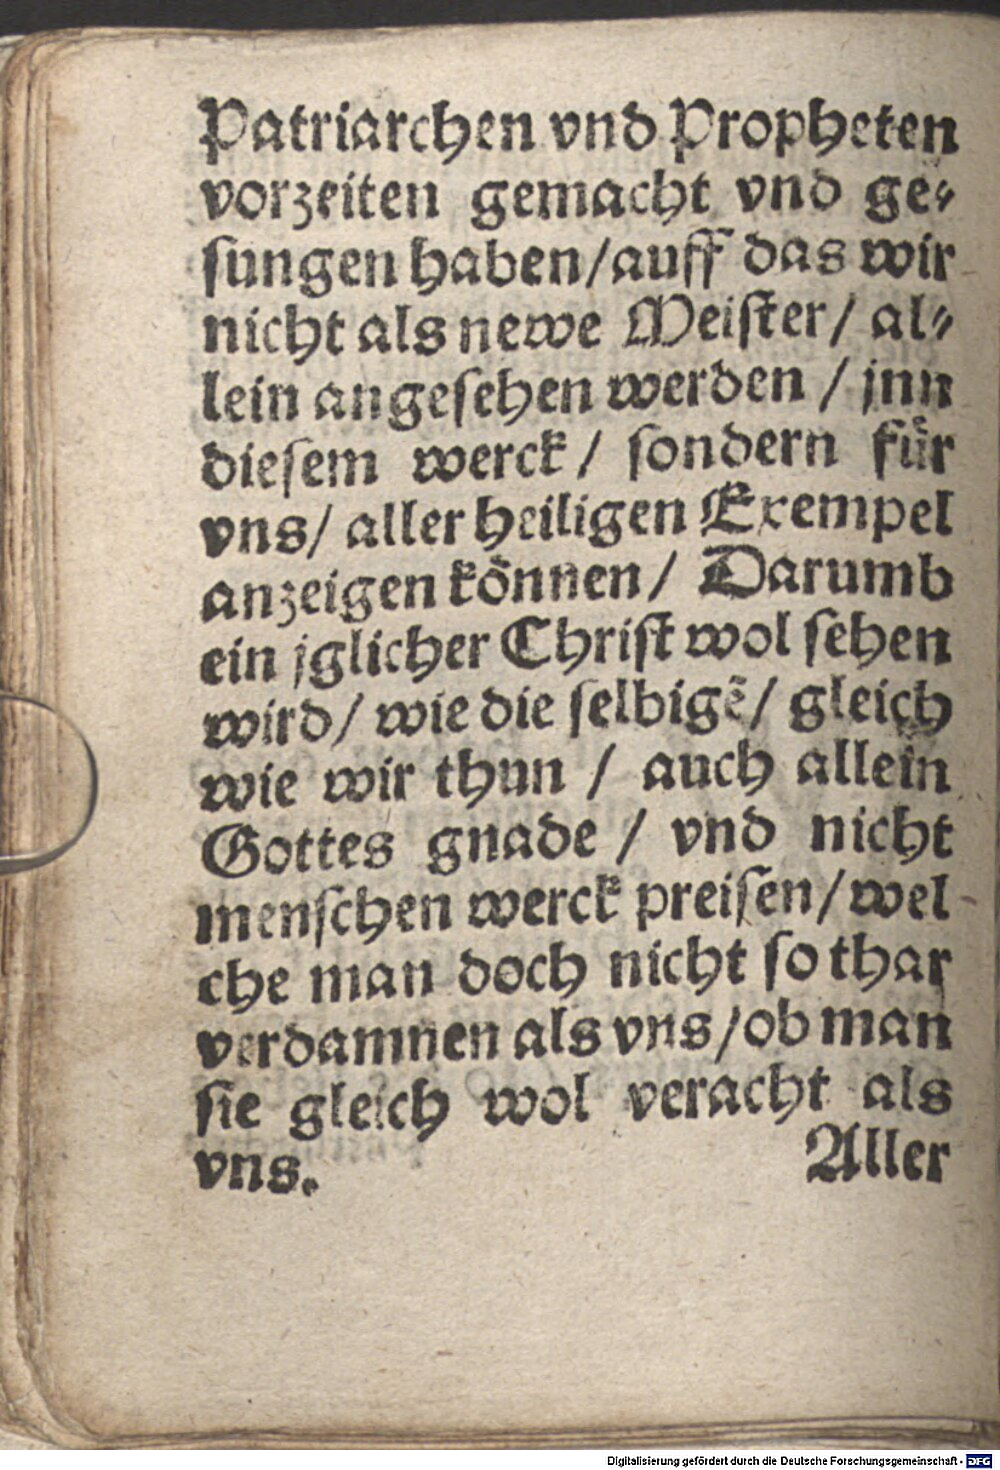 Patriarchen vnd Propheten
vorzeiten gemacht vnd ge⸗
sungen haben/auff das wir
nicht als newe Meister/ al⸗
lein angesehen werden / jnn
diesem werck/ sondern für
vns/ aller heiligen Exempel
anzeigen können/ Darumb
ein jglicher Christ wol sehen
wird/ wie die selbigẽ/ gleich
wie wir thun / auch allein
Gottes gnade / vnd nicht
menschen werck preisen/wel
che man doch nicht so thar
verdamnen als vns/ob man
sie gleich wol veracht als
vns. Aller
Digitalisierung gefördert durch die Deutsche Forschungsgemeinschaft - DFG